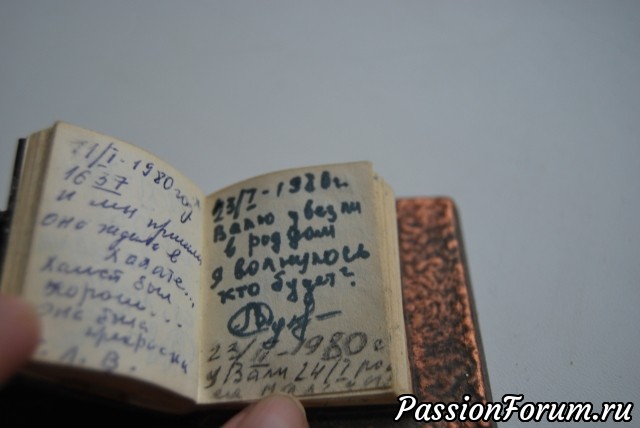 11/I-1980 год
16 57
и мы пришли
она ждала в
халате...
хороши...
она была
прекрасна
Л. В.
23/I-1980г.
Валю увезли
в роддом
Я волнуюсь
кто будет?
Муж-
23/I-1980 г
У Вали 24/I ро
PassionForum.ru